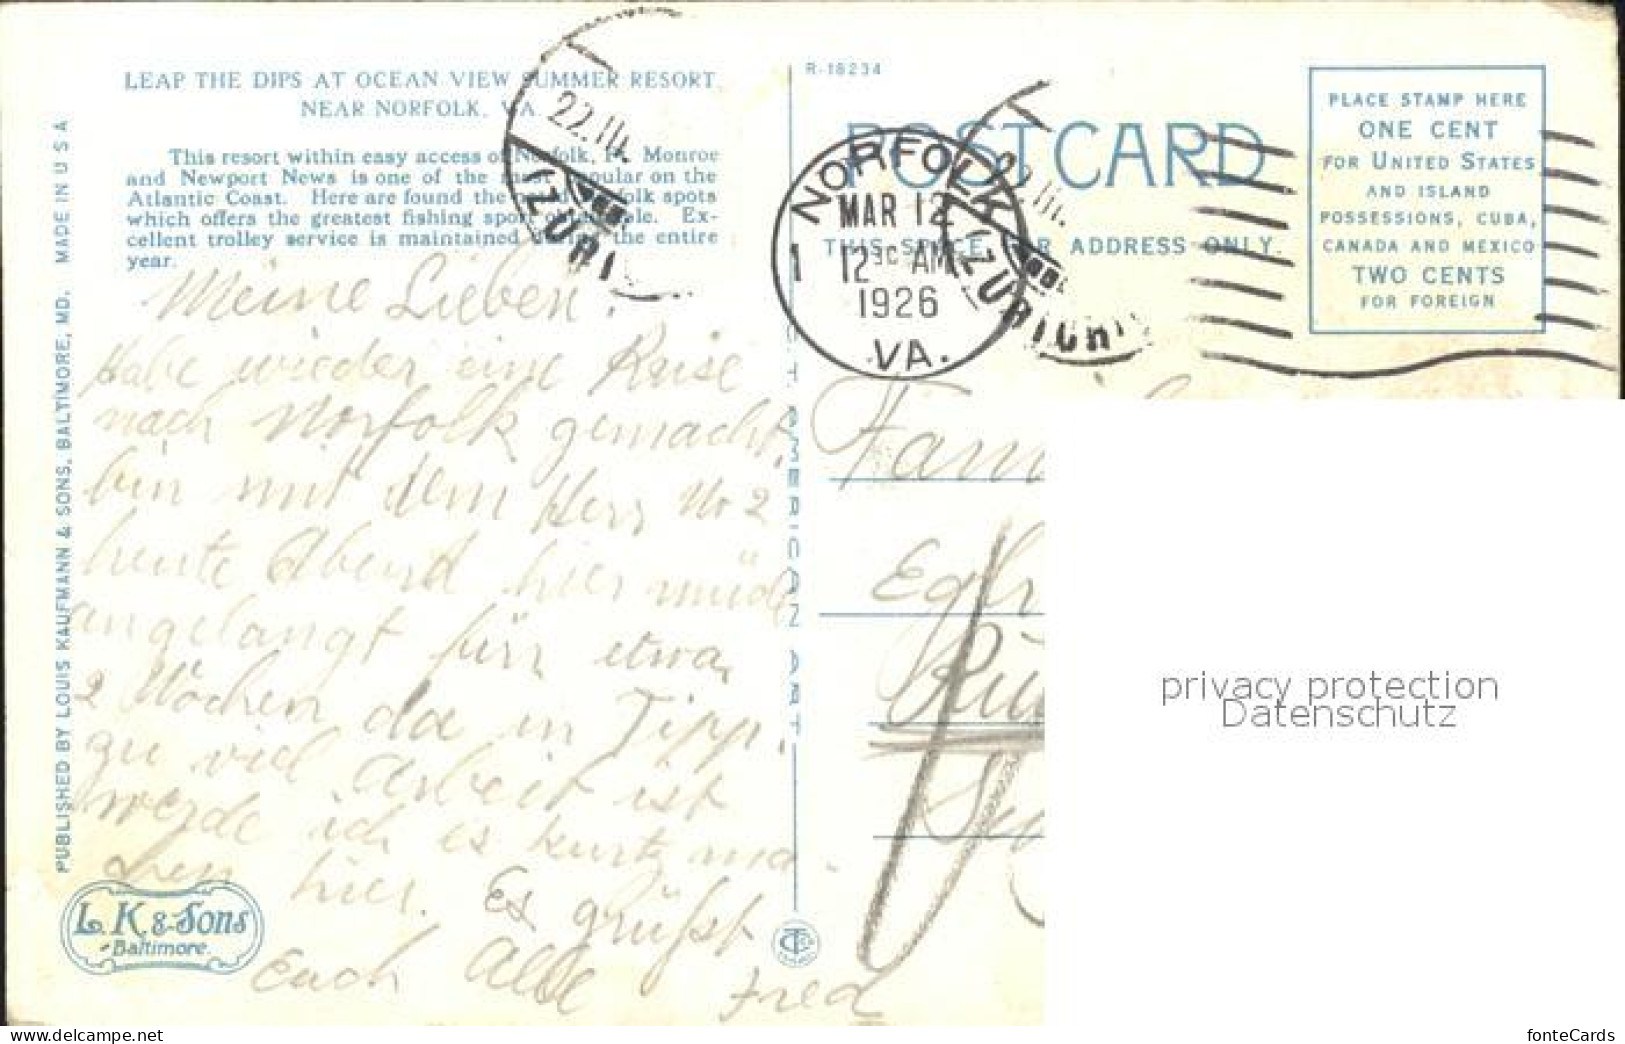 LEAP THE DIPS AT OCEAN VIEW SUMMER RESORT,
NEAR NORFOLK, VA.
This resort within easy access of Norfolk, Ft. Monroe
and Newport News is one of the most popular on the
Atlantic Coast. Here are found the Norfolk spots
which offers the greatest fishing sport obtainable. Ex-
cellent trolley service is maintained during the entire
year.
PUBLISHED BY LOUIS KAUFMANN & SONS, BALTIMORE, MD. MADE IN U S A
Meine Lieben!
Habe wieder eine Reise
nach Norfolk gemacht,
bin mit dem Herr No 2
heute Abend hier müde
angelangt für etwa
2 Wochen da in Tipp.
zu viel Arbeit ist
werde ich es kurtz ma-
chen hier. Es grüsst
Euch Alle Fred
L. K. & Sons
Baltimore.
AMERICAN ART
R-18234
POSTCARD
THIS SPACE FOR ADDRESS ONLY.
PLACE STAMP HERE
ONE CENT
FOR UNITED STATES
AND ISLAND
POSSESSIONS, CUBA,
CANADA AND MEXICO
TWO CENTS
FOR FOREIGN
NORFOLK
MAR 12
1 12 AM
1926
VA.
22.III.
ZÜRI
22.III.
ZÜRICH
Fam
Egl
privacy protection
Datenschutz
www.delcampe.net
fonteCards